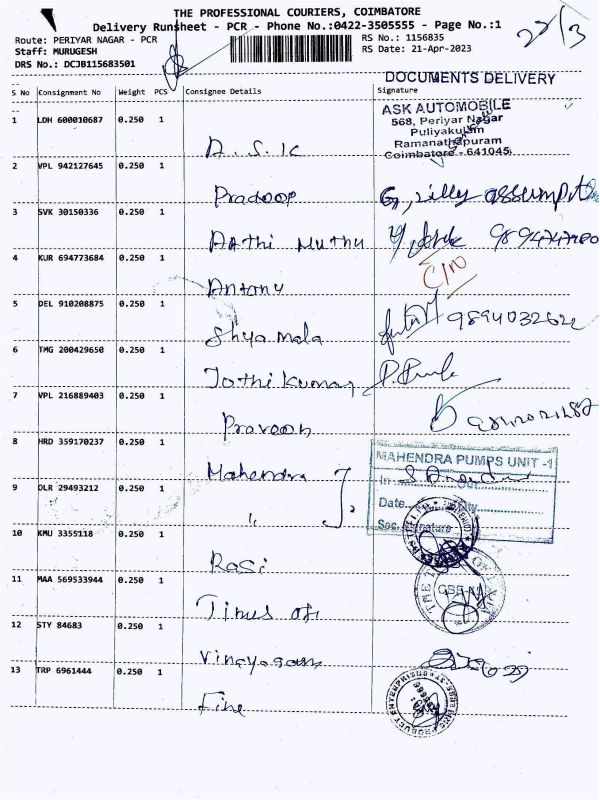 THE PROFESSIONAL COURIERS, COIMBATORE
Delivery Runsheet - PCR - Phone No.:0422-3505555 - Page No.:1
Route: PERIYAR NAGAR - PCR
RS No.: 1156835
Staff: MURUGESH
RS Date: 21-Apr-2023
DRS No.: DCJB115683501
DOCUMENTS DELIVERY
S No Consignment No Weight PCS Consignee Details Signature
1 LDH 600010687 0.250 1 A.S.K
ASK AUTOMOBILE
568, Periyar Nagar
Puliyakulam
Ramanathapuram
Coimbatore - 641045
2 VPL 942127645 0.250 1 Pradoop
3 SVK 30150336 0.250 1 AAthi Muthu
4 KUR 694773684 0.250 1 Antony
5 DEL 910208875 0.250 1 Shyamala 9894032622
6 TMG 200429650 0.250 1 Jothikumar
7 VPL 216889403 0.250 1 Pravoon
8 HRD 359170237 0.250 1 Mahendra
MAHENDRA PUMPS UNIT -1
9 OLR 29493212 0.250 1 "
Date
10 KMU 3355118 0.250 1 Rasi
11 MAA 569533944 0.250 1 Times of
12 STY 84683 0.250 1 Vinayagam
13 TRP 6961444 0.250 1 Fine